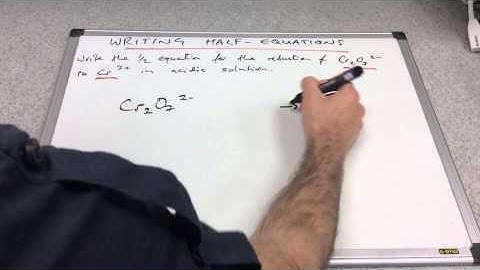 WRITING HALF-EQUATIONS
Write the ½ equation for the reduction of Cr₂O₇²⁻
to Cr³⁺ in acidic solution.
Cr₂O₇²⁻ →